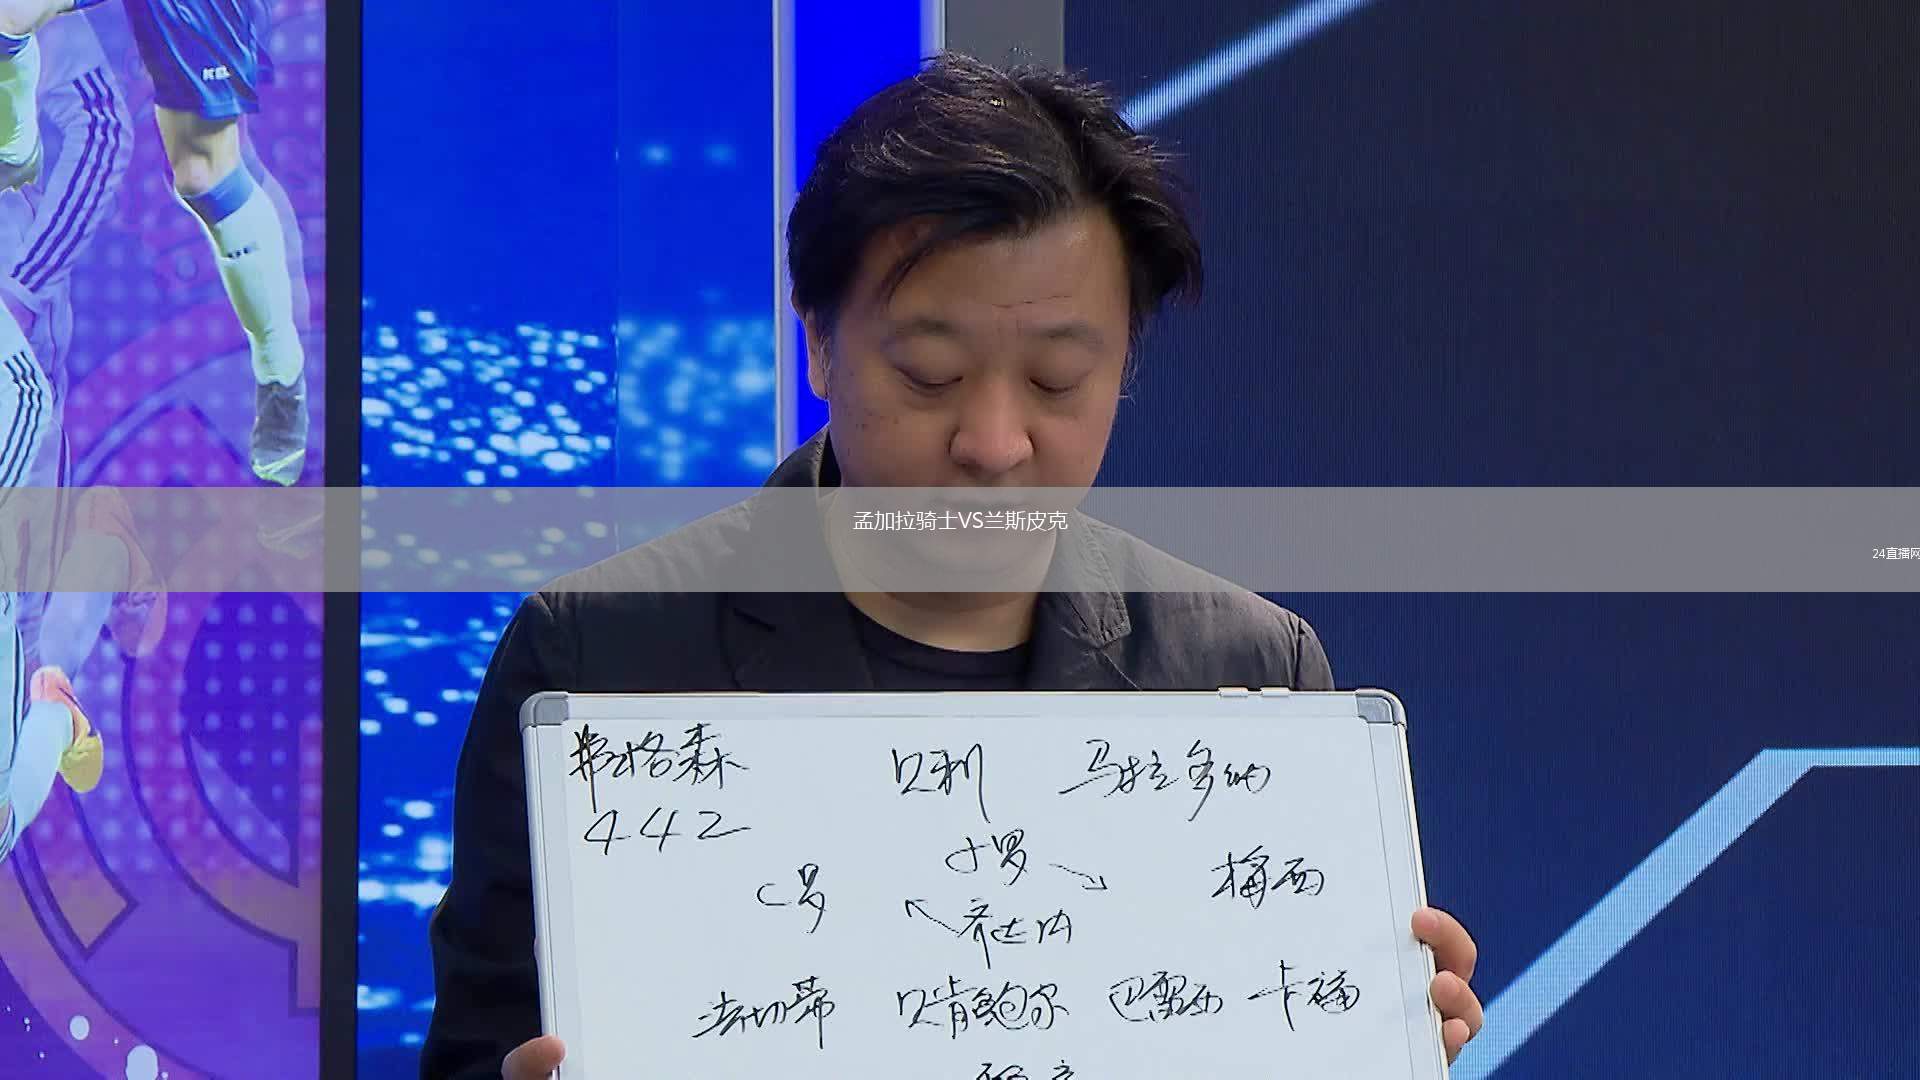 孟加拉骑士VS兰斯皮克
24直播网
弗格森 贝利 马拉多纳
442
C罗 小罗 梅西
齐达内
法切蒂 贝肯鲍尔 巴雷西 卡福